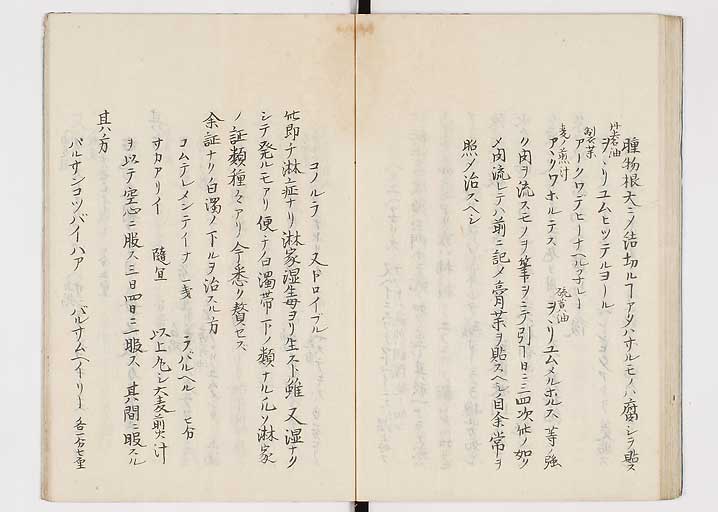 腫物根大ニシテ結切ルコアタハサルモノハ腐シヲ貼ス
ヲヽリユムヒツテルヨール
アークワデヒーナヘルフナレート
アヽクワホルテス ヲヽリユムメルホルス 等ノ強
ク肉ヲ流スモノヲ筆ヲニテ引コ日ニ三四次此ノ如ク
〆肉流レテハ前ニ記ノ膏薬ヲ貼スヘシ目余常ヲ
照〆治スヘシ
コノルラ 又ドロイプル
此即チ淋症ナリ淋家湿毒ヨリ生スト雖又湿ナク
シテ発ルモアリ便チノ白濁帯下ノ類ナル凡ソ淋家
ノ証類種々アリ今悉ク贅セス
余証ナリ白濁ノ下ルヲ治スル方
コムテレメンテイナ 一戔 ラバルヘル 七分
サカアリイ 随宜 以上丸シ大麦煎汁
ヲ以テ空心ニ服ス三日四日ニ一服ス 其間ニ服スル
其ハ方
バルサンコツバイハア バルサムヘイリート